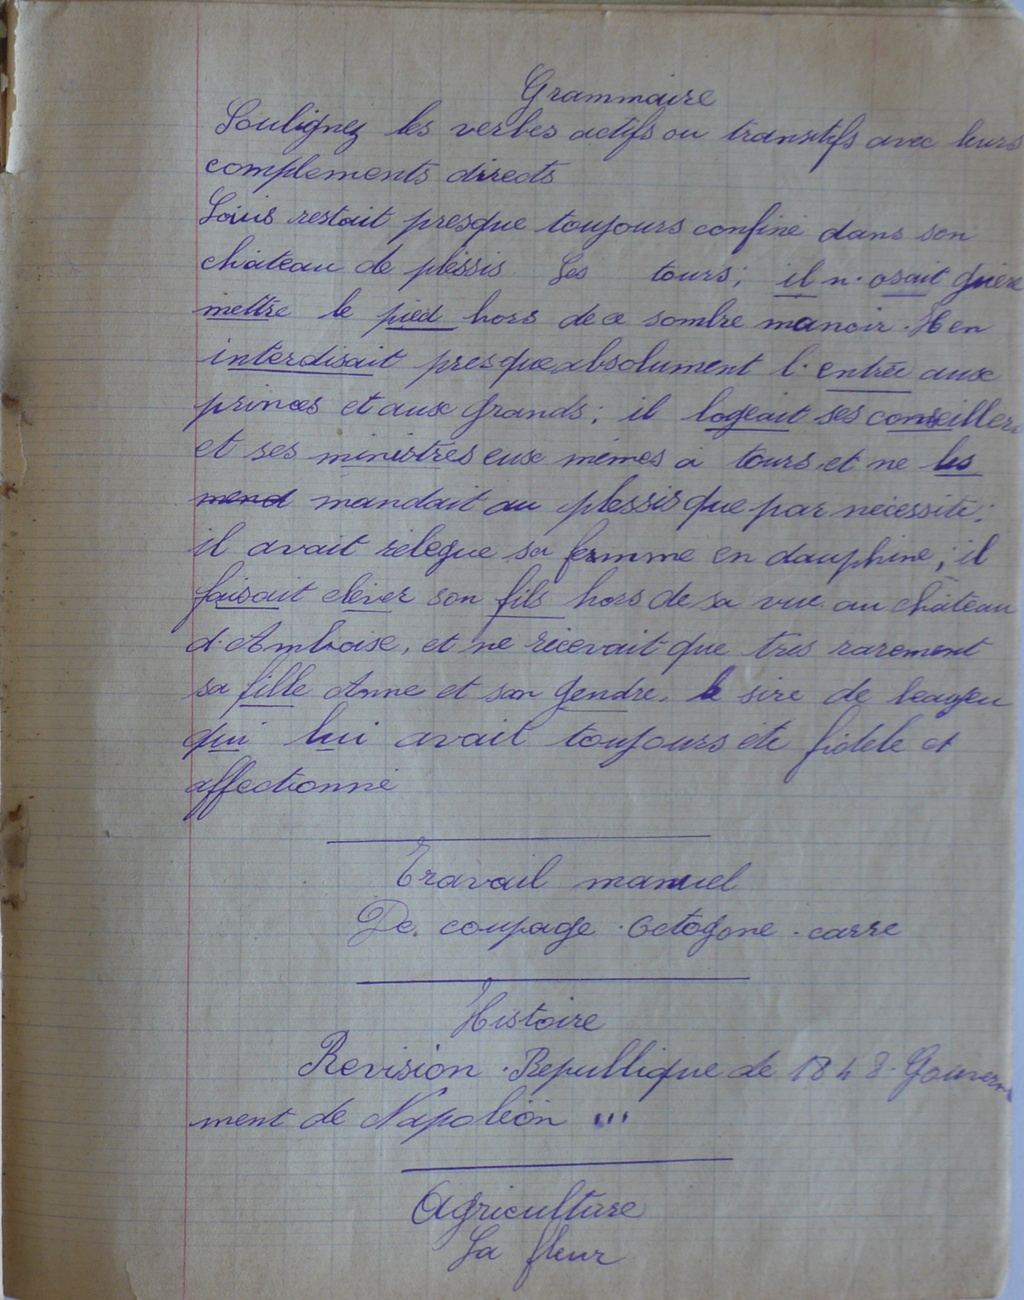 Grammaire
Soulignez les verbes actifs ou transitifs avec leurs
complements directs
Louis restait presque toujours confiné dans son
château de plessis Les tours; il n'osait guère
mettre le pied hors de ce sombre manoir. Il en
interdisait presque absolument l'entrée aux
princes et aux grands; il logeait ses conseillers
et ses ministres eux mêmes à tours, et ne les
mend mandait au plessis que par nécessité;
il avait rélégue sa femme en dauphine; il
faisait élever son fils hors de sa vue au château
d'Amboise, et ne recevait que très rarement
sa fille Anne et son gendre, le sire de beaujeu
qui lui avait toujours été fidèle et
affectionné
Travail manuel
De coupage. Octogone. carre
Histoire
Revision. Republlique de 1848. Gouverne
ment de Napoléon III
Agriculture
La fleur